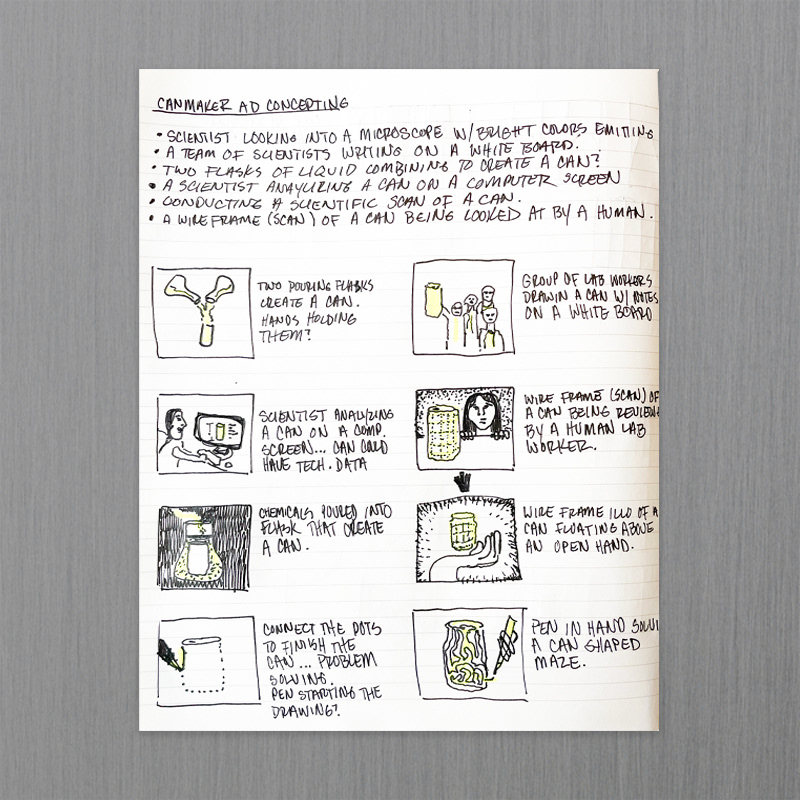 CANMAKER AD CONCEPTING
• SCIENTIST LOOKING INTO A MICROSCOPE W/ BRIGHT COLORS EMITING
• A TEAM OF SCIENTISTS WRITING ON A WHITE BOARD.
• TWO FLASKS OF LIQUID COMBINING TO CREATE A CAN?
• A SCIENTIST ANAYLIZING A CAN ON A COMPUTER SCREEN
• CONDUCTING A SCIENTIFIC SCAN OF A CAN.
• A WIRE FRAME (SCAN) OF A CAN BEING LOOKED AT BY A HUMAN.
TWO POURING FLASKS
CREATE A CAN.
HANDS HOLDING
THEM?
GROUP OF LAB WORKERS
DRAWIN A CAN W/ NOTES
ON A WHITE BOARD
SCIENTIST ANALYZING
A CAN ON A COMP.
SCREEN... CAN COLD
HAVE TECH. DATA
WIRE FRAME (SCAN) OF
A CAN BEING REVIEWE
BY A HUMAN LAB
WORKER.
CHEMICALS POURED INTO
FLASK THAT CREATE
A CAN.
WIRE FRAME ILLO OF A
CAN FLOATING ABOVE
AN OPEN HAND.
CONNECT THE DOTS
TO FINISH THE
CAN... PROBLEM
SOLVING.
PEN STARTING THE
DRAWING?
PEN IN HAND SOLVI
A CAN SHAPED
MAZE.